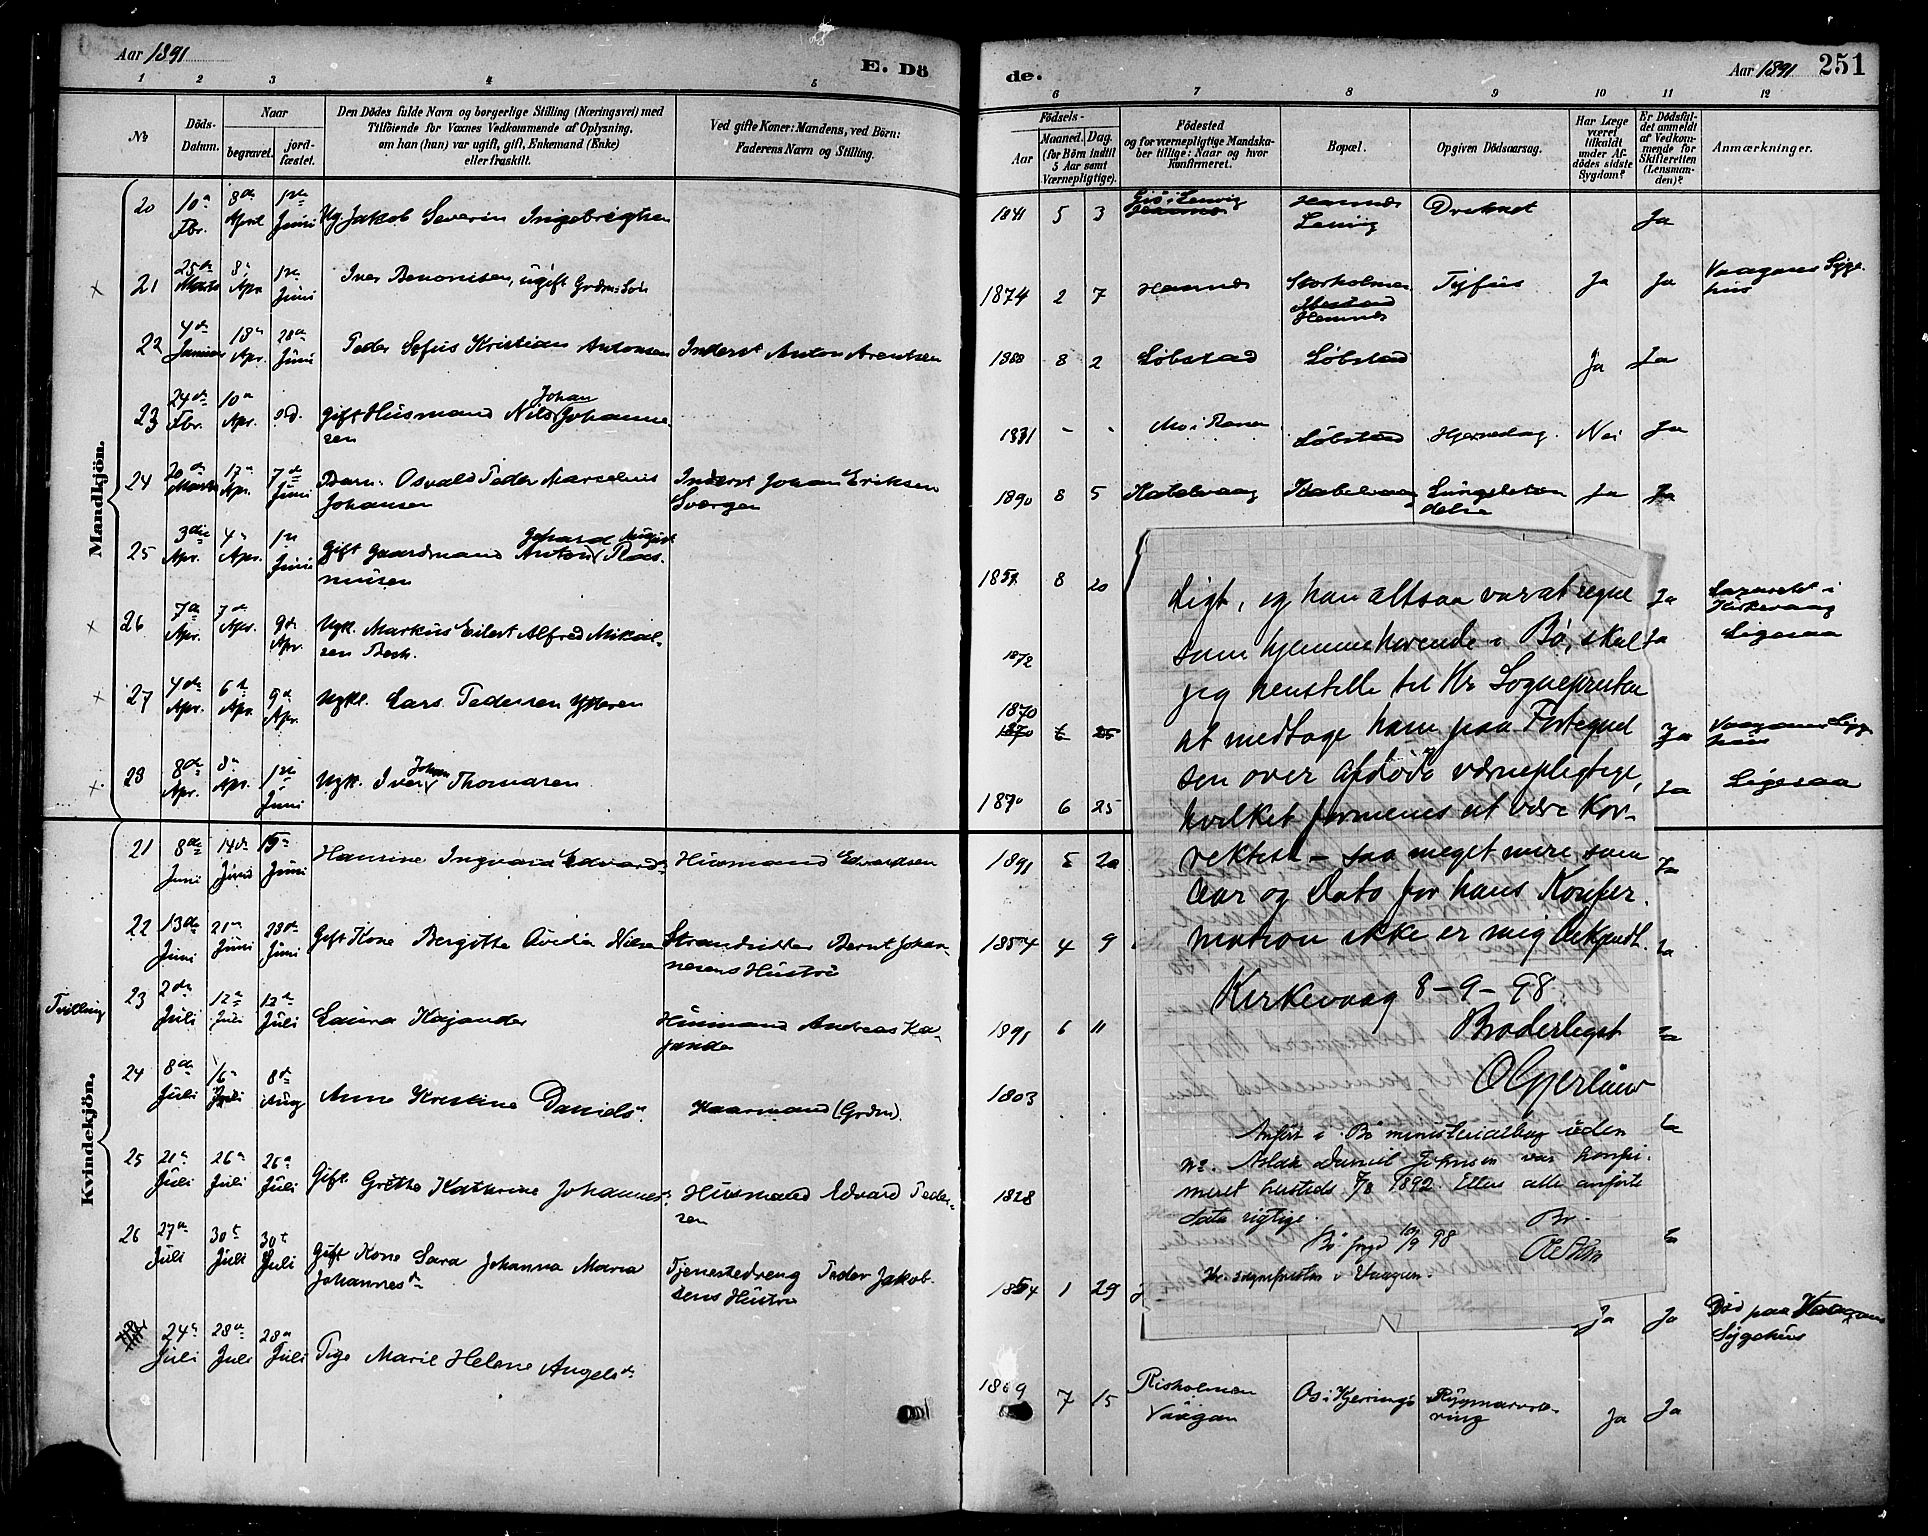 Aar 1891
E. Dö
de.
Aar 1891 251
1 2 3 4 5
6 7 8 9 10 11 12
No
Döds-
Datum.
Naar
begravet.
jord-
fæstet.
Den Dödes fulde Navn og borgerlige Stilling (Næringsvei) med
Tilföiende for Voxnes Vedkommende af Oplysning,
om han (hun) var ugift, gift, Enkemand (Enke)
eller fraskilt.
Ved gifte Koner: Mandens, ved Börn:
Faderens Navn og Stilling.
Födsels-
Aar
Maaned. Dag.
(for Börn indtil
5 Aar samt
Værnepligtige).
Födested
og for værnepligtige Mandska-
ber tillige: Naar og hvor
konfirmeret.
Bopæl.
Opgiven Dödsaarsag.
Har Læge
været
tilkaldt
under Af-
dödes sidste
Sygdom?
Er Dödsfal-
det anmeldt
af Vedkom-
mende for
Skifteretten
(Lensman-
den)?
Anmærkninger.
Mandkjön.
20 10de Fbr. 8de April 1ste Juni Ug. Jakob Severin Ingebrigtsen
1841 5 3 Lenvig Druknet Ja
21 25de Marts 8de Apr. 1ste Juni Iver Benonisen, ugift Grdm. Sön
1874 2 7 Hennes Storholmen Hennes Tyfus Ja Ja Vaagans Syge-
hus
22 4de Januar 18de Apr. 28de Juni Peder Sofus Kristian Antonsen Inderst Anton Arentsen
1888 8 2 Löbstad Löbstad Ja Ja
23 24de Fbr. 10de Apr. s.d. Gift Husmand Nils Johan Johanne-
sen
1831 - - Mo i Ranen Löbstad Hjerneslag Nei Ja
24 20de Marts 17de Apr. 7de Juni Barn: Osvald Peder Marselius
Johansen Inderst Johan Eriksen
Sværgen
1890 8 5 Kabelvaag Kabelvaag Lungebeten-
delse Ja Ja
25 3die Apr. 4de Apr. 1ste Juni Gift Gaardmand Anton Gerhard August Ras-
musen
1851 8 20 Ja Lazarettet i
Kirkevaag
26 7de Apr. 7de Apr. 9de Apr. Ugk. Markus Eilert Alfred Mikal-
sen Bech.
1872 Ja Ligesaa
27 4de Apr. 6te Apr. 9de Apr. Ugkl. Lars Pedersen Ytteren
1870 6 25 Ja Vaagans Syge-
hus
28 8de Apr. 8de Apr. 1ste Juni Ugk. Iver Johan Thomasen
1870 6 25 Ja Ligesaa
Kvindekjön.
21 8de Juni 14de Juni 15de Juni Hansine Ingvarda Edvards. Husmand Edvardsen
1891 5 20 Ja
22 13de Juni 21de Juni 28de Juni Gift Kone Bergitte Ovidia Nilsen Strandsidder Bernt Johan-
nesens Hustru
1854 4 9 Ja
Tvilling
23 2den Juli 12te Juli 12te Juli Laura Kajander Husmand Andreas Ka-
jander
1891 6 11 Ja
24 8de Juli 16de Juli 8de Aug Anne Kristine Daniels. Kaarmand (Grdm).
1803 Ja
25 21de Juli 26de Juli 26de Juli Gift. Grethe Kathrine Johannes. Husmand Edvard Peder-
sen
1828
26 27de Juli 30te Juli 30te Juli Gift Kone Sara Johanna Maria
Johannesd. Tjenestedreng Peder Jakob-
sens Hustru
1854 1 29 Ja Ja Död paa Vaagans
Sygehus
24de Juli 28de Juli 28de Juli Pige Marie Helene Angelsd.
1869 7 15 Risholmen
Vaagan Os i Kjerringö Rygmarvstæ-
ring Ja Ja
digt, og han altsaa var at regne
som hjemmehörende i Bö, skal
jeg henstille til Hr Sogneprsten
at medtage ham paa Fortegnel
sen over afdöde værnepligtige,
hvilket formenes at være kor-
rektest - saa meget mere som
Aar og Dato for hans Konfir-
mation ikke er mig bekjendt.
Kirkevaag 8-9-98.
Broderligst
O Gjerløw
Anfört i Bö ministerialbog uden
No. Aslak Daniel Johnsen var konfir-
meret hersteds 7/8 1892. Ellers alle anförte
data rigtige.
Bö prgd 10/9 98 Br.
Hr. sogneprsten i Vaagan.